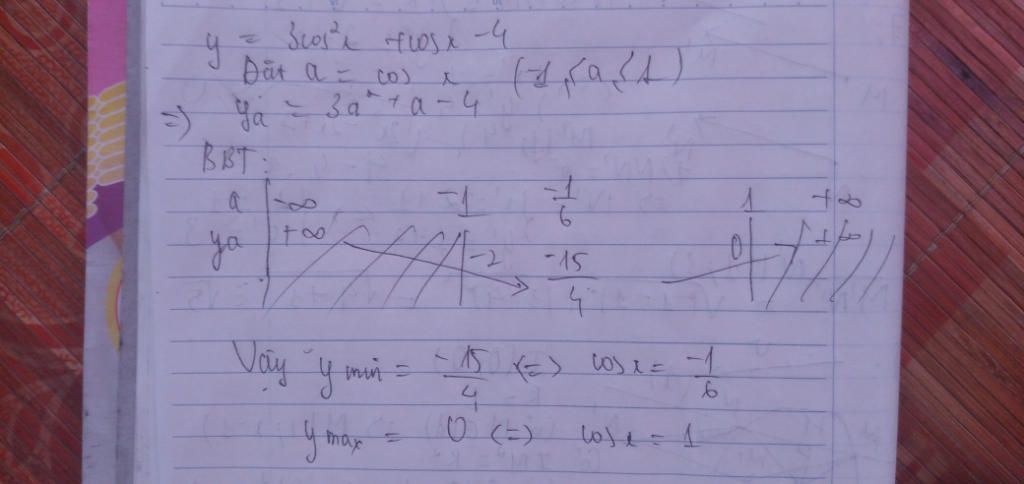 y = 3cos²x + cosx - 4
Đặt a = cos x (-1 ≤ a ≤ 1)
=> ya = 3a² + a - 4
BBT:
a -∞ -1 -1/6 1 +∞
ya +∞ -2 -15/4 0 +∞
Vậy y min = -15/4 <=> cosx = -1/6
y max = 0 <=> cosx = 1